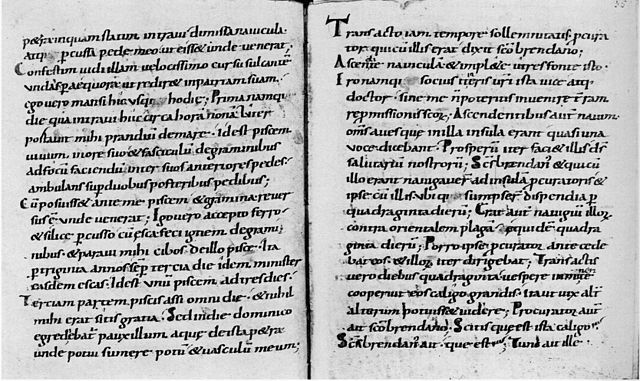 p&ram inquam statim intravi dimissa navicula.
atq; percussa pede meo ut eiss& unde venerat.
Confestim vidi illam velocissimo cursu sulcante
undas p aequora ut redir& in patriam suam.
ego vero mansi hic usq; in hodie; Prima namq;
die qua intravi huc circa hora nonā luter
postavit mihi prandiū demare. idest piscem
unum in ore suo & fasciculū degraminibus
ad focū faciendū inter suos anteriores pedes
ambulans sup duobus posteribus pedibus;
Cū posuiss& ante me piscem & gramina rever
sus ē unde venerat; Igo vero accepto ferro
& silice percusso cū esca feci ignem degrami
nibus & paravi mihi cibos deillo pisce. Ita
p triginta annos sēp tercia die idem minister
easdem escas. Idest unū piscem ad tres dies.
Terciam partem piscis assi omni die. & nihil
mihi erat sitis gratia. Sed in die dominico
egredebat pauxillum aquę de ista p&ra
unde potui sumere potū & vasculū meum;
Transacto iam tempore sollemnitatis. pcura
tor qui cū illis erat dixit scō brendano;
Ascendite naviculā & impl&e utres fonte isto.
Ero namq; socius itineris uri ista vice atq;
doctor. sine me n poteritis invenire trram
repmissionis scōr; Ascendentibus aut navim
oms aves que in illa insula erant quasi una
voce dicebant. Prosperū iter faciat illis ds
salutariū nostrorū; Scs brendan & qui cū
illo erant navigaver ad insulā pcuratoris &
ipse cū illis. Ubi sumpser dispendia p
quadraginta dierū; Erat aut navigiū illor
contra orientalem plagā quidē quadra
ginta dierū; Porro ipse pcurator ante cede
bat eos & illor iter dirigebat; Transactis
vero diebus quadraginta vespere inminente
cooperuit eos caligo grandis. ita ut vix alt
alterum potuiss& videre; Procurator aut
ait scō brendano. Scitis que est ista caligo;
Scs brendan ait. que est; Tunc ait ille.